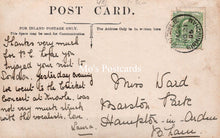 POST CARD.
FOR INLAND POSTAGE ONLY, THIS SPACE MAY BE USED FOR COMMUNICATION
The Address only to be written here.
Thanks very much
for P.C. hope you
enjoyed your visit to
London. Yesterday evening
we went to the
Concert at
was not very much struck
with the vocalists. Love
Miss Ward
Marston Park
Hampton-in-Arden
B'ham
Mo's Postcards